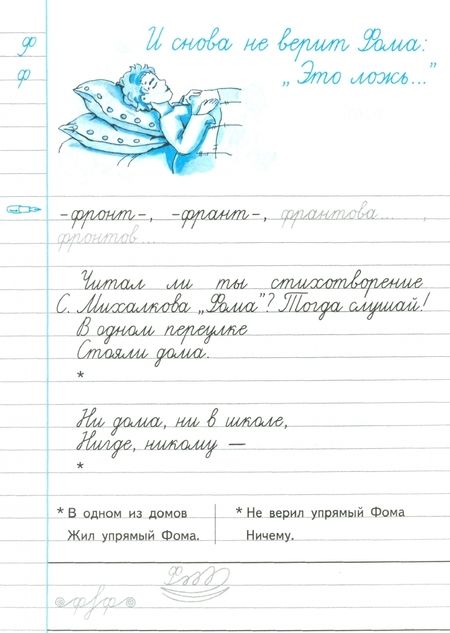 Ф И снова не верит Фома:
ф „Это ложь..."
-фронт-, -франт-, франтова... ,
фронтов...
Читал ли ты стихотворение
С. Михалкова „Фома"? Тогда слушай!
В одном переулке
Стояли дома.
*
Ни дома, ни в школе,
Нигде, никому —
*
* В одном из домов
Жил упрямый Фома.
* Не верил упрямый Фома
Ничему.